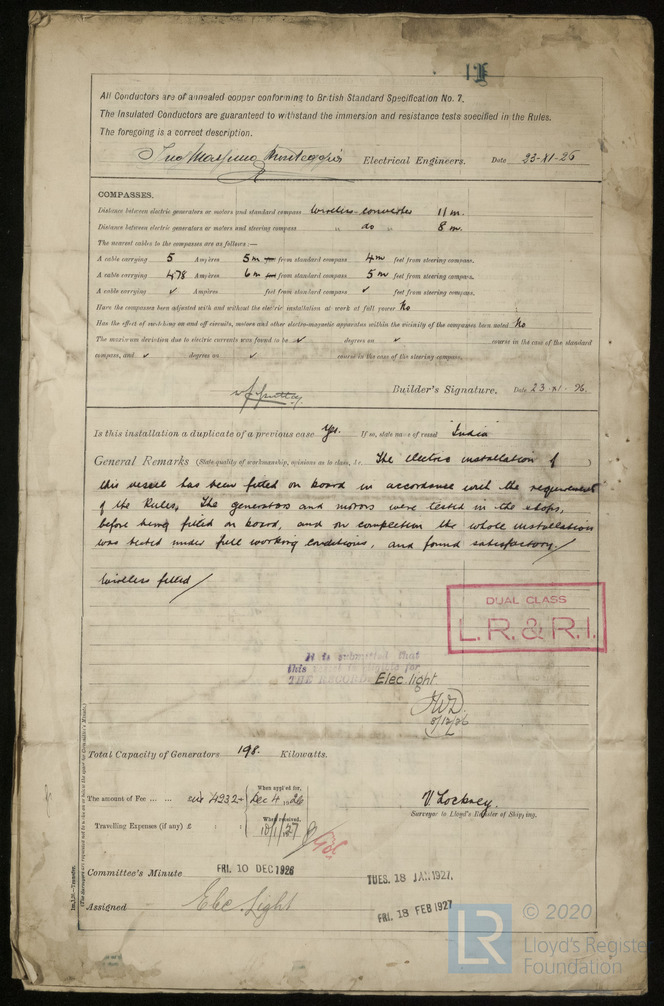 All Conductors are of annealed copper conforming to British Standard Specification No. 7.
The Insulated Conductors are guaranteed to withstand the immersion and resistance tests specified in the Rules.
The foregoing is a correct description.
Electrical Engineers. Date 23-XI-26
COMPASSES.
Distance between electric generators or motors and standard compass Wireless converter 11 m.
Distance between electric generators or motors and steering compass " do " 8 m.
The nearest cables to the compasses are as follows:—
A cable carrying 5 Ampères 5 m feet from standard compass 4 m feet from steering compass.
A cable carrying 478 Ampères 6 m feet from standard compass 5 m feet from steering compass.
A cable carrying ✓ Ampères feet from standard compass ✓ feet from steering compass.
Have the compasses been adjusted with and without the electric installation at work at full power No
Has the effect of switching on and off circuits, motors and other electro-magnetic apparatus within the vicinity of the compasses been noted No
The maximum deviation due to electric currents was found to be ✓ degrees on ✓ course in the case of the standard
compass, and ✓ degrees on ✓ course in the case of the steering compass.
Builder's Signature. Date 23 - XI - 26.
Is this installation a duplicate of a previous case Yes. If so, state name of vessel "India"
General Remarks (State quality of workmanship, opinions as to class, &c. The electric installation of )
this vessel has been fitted on board in accordance with the requirements
of the Rules. The generators and motors were tested in the shops,
before being fitted on board, and on completion the whole installation
was tested under full working conditions, and found satisfactory.
Wireless fitted
DUAL CLASS
L.R. & R.I.
It is submitted that
this vessel is eligible for
THE RECORD Elec light.
8/12/26
Total Capacity of Generators 198. Kilowatts.
The amount of Fee ... ... Lire 4932 When applied for, Dec 4 1926
Travelling Expenses (if any) £ : : When received, 10/1/27
V Lockney.
Surveyor to Lloyd's Register of Shipping.
Committee's Minute FRI. 10 DEC 1926 TUES. 18 JAN. 1927.
Assigned Elec. Light FRI. 18 FEB 1927
Im.1,26.—Transfer.
© 2020
LR Lloyd's Register
Foundation